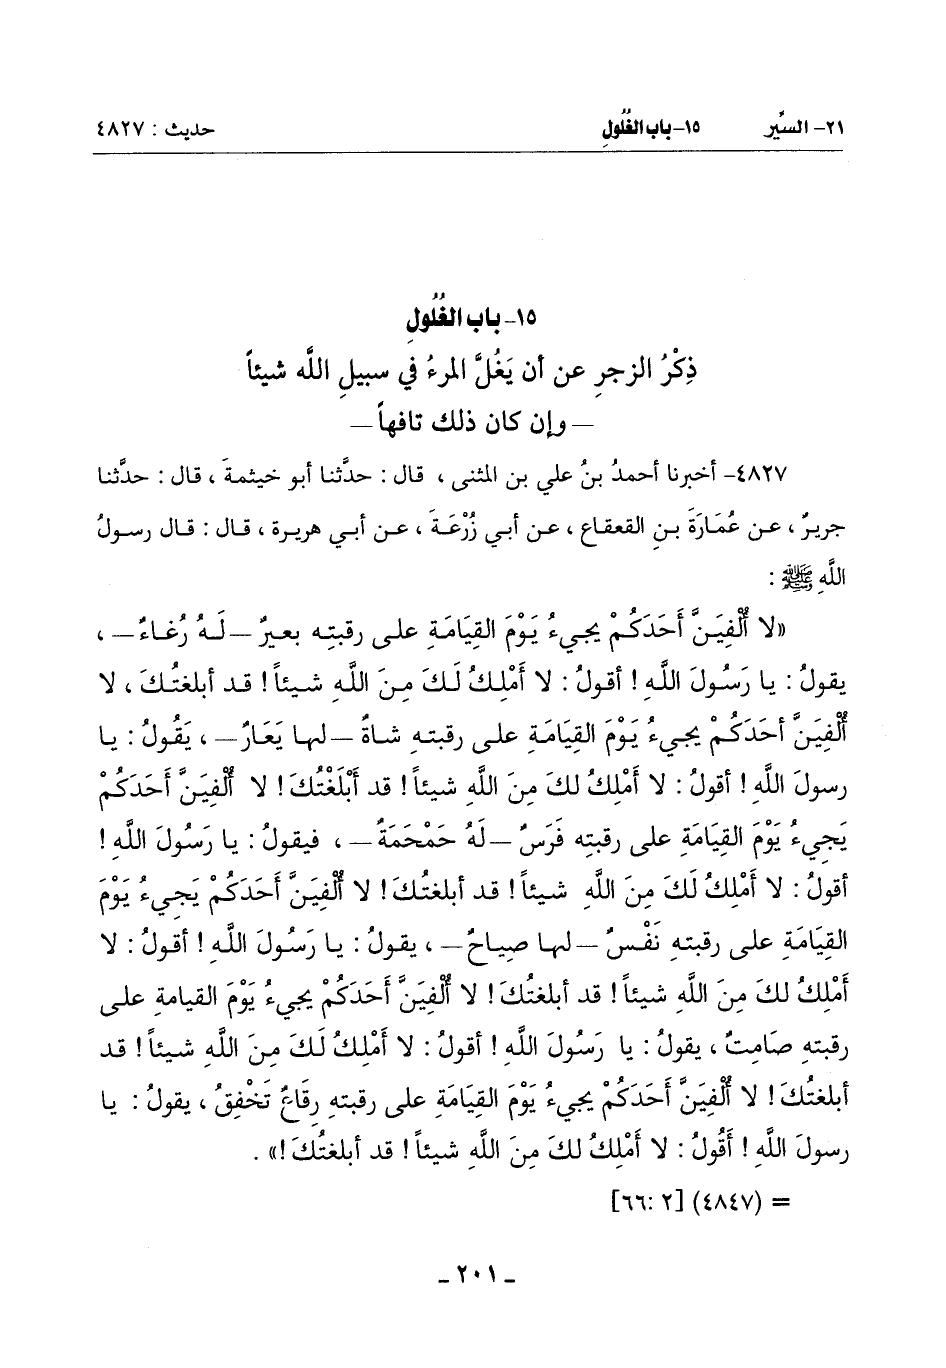 ٢١- السِّير ١٥- باب الغُلُولِ حديث : ٤٨٢٧
١٥- باب الغُلُولِ
ذِكْرُ الزجرِ عن أن يَغُلَّ المرءُ في سبيلِ اللَّه شيئاً
– وإن كان ذلك تافهاً –
٤٨٢٧- أخبرنا أحمدُ بنُ علي بن المثنى ، قال : حدَّثنا أبو خيثمةَ ، قال : حدَّثنا
جريرٌ ، عن عُمَارَةَ بنِ القعقاع ، عن أبي زُرْعَةَ ، عن أبي هريرة ، قال : قال رسولُ
اللَّهِ ﷺ :
«لا أُلْفِيَنَّ أَحَدَكُمْ يجيءُ يَوْمَ القِيَامَةِ على رقبتِه بعيرٌ –لَهُ رُغاءٌ– ،
يقولُ : يا رَسُولَ اللَّهِ ! أقولُ : لا أَمْلِكُ لَكَ مِنَ اللَّهِ شيئاً ! قد أبلغتُكَ ، لا
أُلْفِيَنَّ أحَدَكُمْ يجيءُ يَوْمَ القِيَامَةِ على رقبتِه شاةٌ –لها يَعَارٌ– ، يَقُولُ : يا
رسولَ اللَّهِ ! أقولُ : لا أَمْلِكُ لكَ مِنَ اللَّهِ شيئاً ! قد أَبْلَغْتُكَ ! لا أُلْفِيَنَّ أَحَدَكُمْ
يَجِيءُ يَوْمَ القِيَامَةِ على رقبتِه فَرَسٌ –لَهُ حَمْحَمَةٌ– ، فيقولُ : يا رَسُولَ اللَّه !
أقولُ : لا أَمْلِكُ لَكَ مِنَ اللَّهِ شيئاً ! قد أبلغتُكَ ! لا أُلْفِيَنَّ أَحَدَكُمْ يَجِيءُ يَوْمَ
القِيَامَةِ على رقبتِه نَفْسٌ –لها صِياحٌ– ، يقولُ : يا رَسُولَ اللَّهِ ! أقولُ : لا
أَمْلِكُ لكَ مِنَ اللَّهِ شيئاً ! قد أبلغتُكَ ! لا أُلْفِيَنَّ أَحَدَكُمْ يجيءُ يَوْمَ القيامةِ على
رقبتِه صَامِتٌ ، يقولُ : يا رَسُولَ اللَّهِ ! أقولُ : لا أَمْلِكُ لَكَ مِنَ اللَّهِ شيئاً ! قد
أبلغتُكَ ! لا أُلْفِيَنَّ أَحَدَكُمْ يجيءُ يَوْمَ القِيَامَةِ على رقبتِه رِقَاعٌ تَخْفِقُ ، يقولُ : يا
رسولَ اللَّهِ ! أَقُولُ : لا أَمْلِكُ لكَ مِنَ اللَّهِ شيئاً ! قد أبلغتُكَ !» .
= (٤٨٤٧) [٢ :٦٦]
- ٢٠١ -